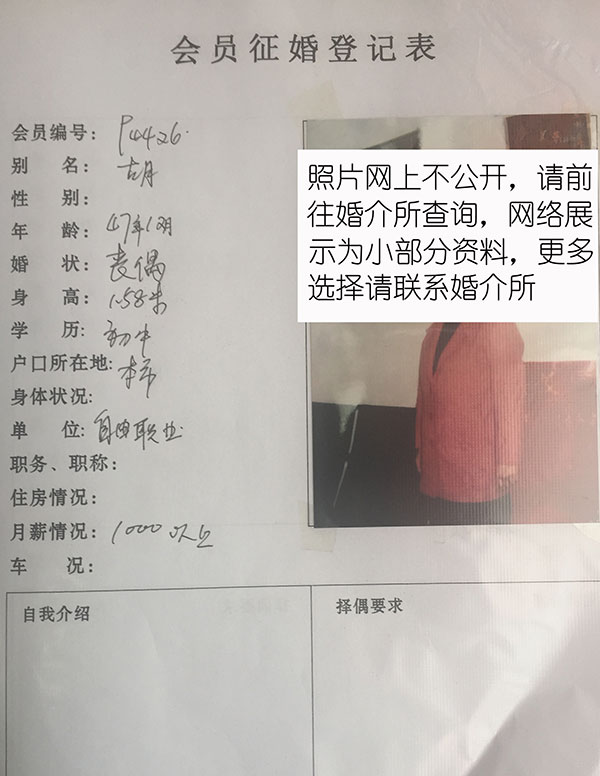 会员征婚登记表
会员编号：P4426
别 名：胡
性 别：
年 龄：47年12月
婚 状：丧偶
身 高：1.58米
学 历：初中
户口所在地：本市
身体状况：
单 位：自由职业
职务、职称：
住房情况：
月薪情况：1000以上
车 况：
照片网上不公开，请前
往婚介所查询，网络展
示为小部分资料，更多
选择请联系婚介所
自我介绍
择偶要求